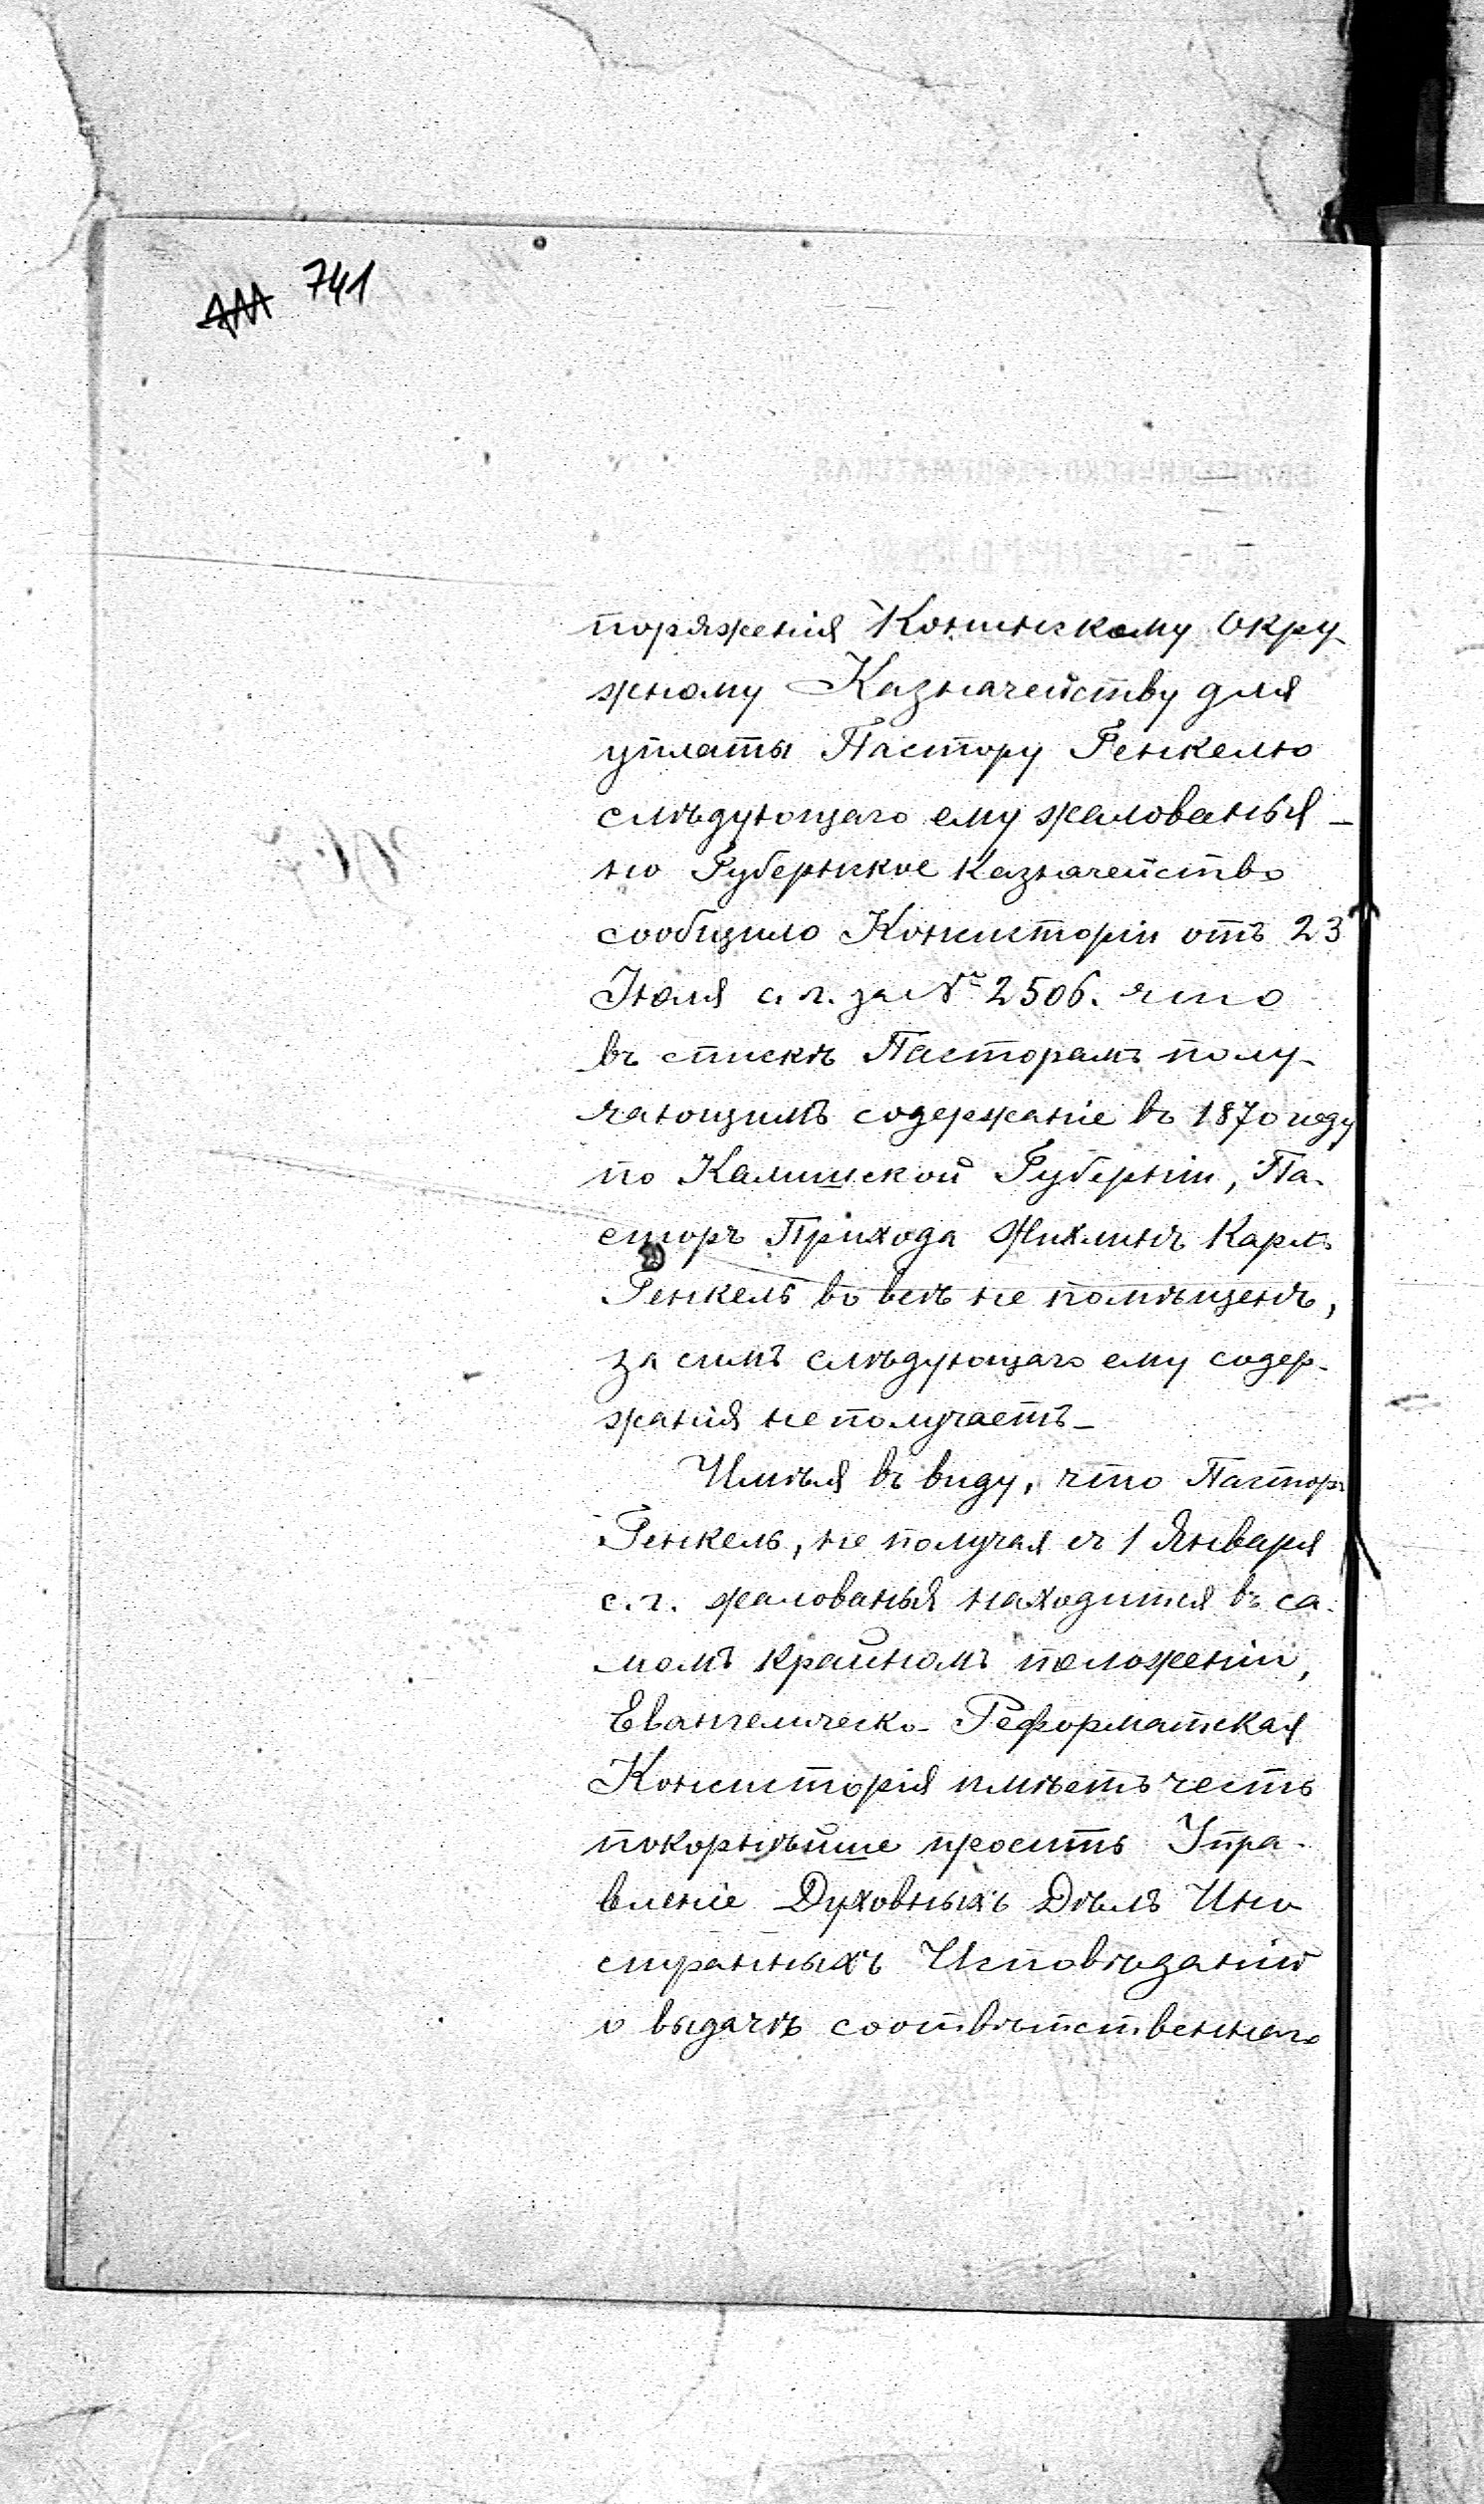 741
поряженія Конинскому Окру-
жному Казначейству для
уплаты Пастору Генкелю
слѣдующаго ему жалованья –
но Губернское Казначейство
сообщило Консисторіи отъ 23
Іюля с. г. за № 2506. что
въ спискѣ Пасторамъ полу-
чающимъ содержаніе въ 1870 году
по Калишской Губерніи, Па-
сторъ Прихода Жихлинъ Карлъ
Генкель вовсе не помѣщенъ,
за симъ слѣдующаго ему содер-
жанія не получаетъ –
Имѣя въ виду, что Пасторъ
Генкель, не получая съ 1 Января
с. г. жалованья находится въ са-
момъ крайномъ положеніи,
Евангелическо-Реформатская
Консисторія имѣетъ честь
покорнѣйше просить Упра-
вленіе Духовныхъ Дѣлъ Ино
странныхъ Исповѣданій
о выдачѣ соотвѣтственнаго